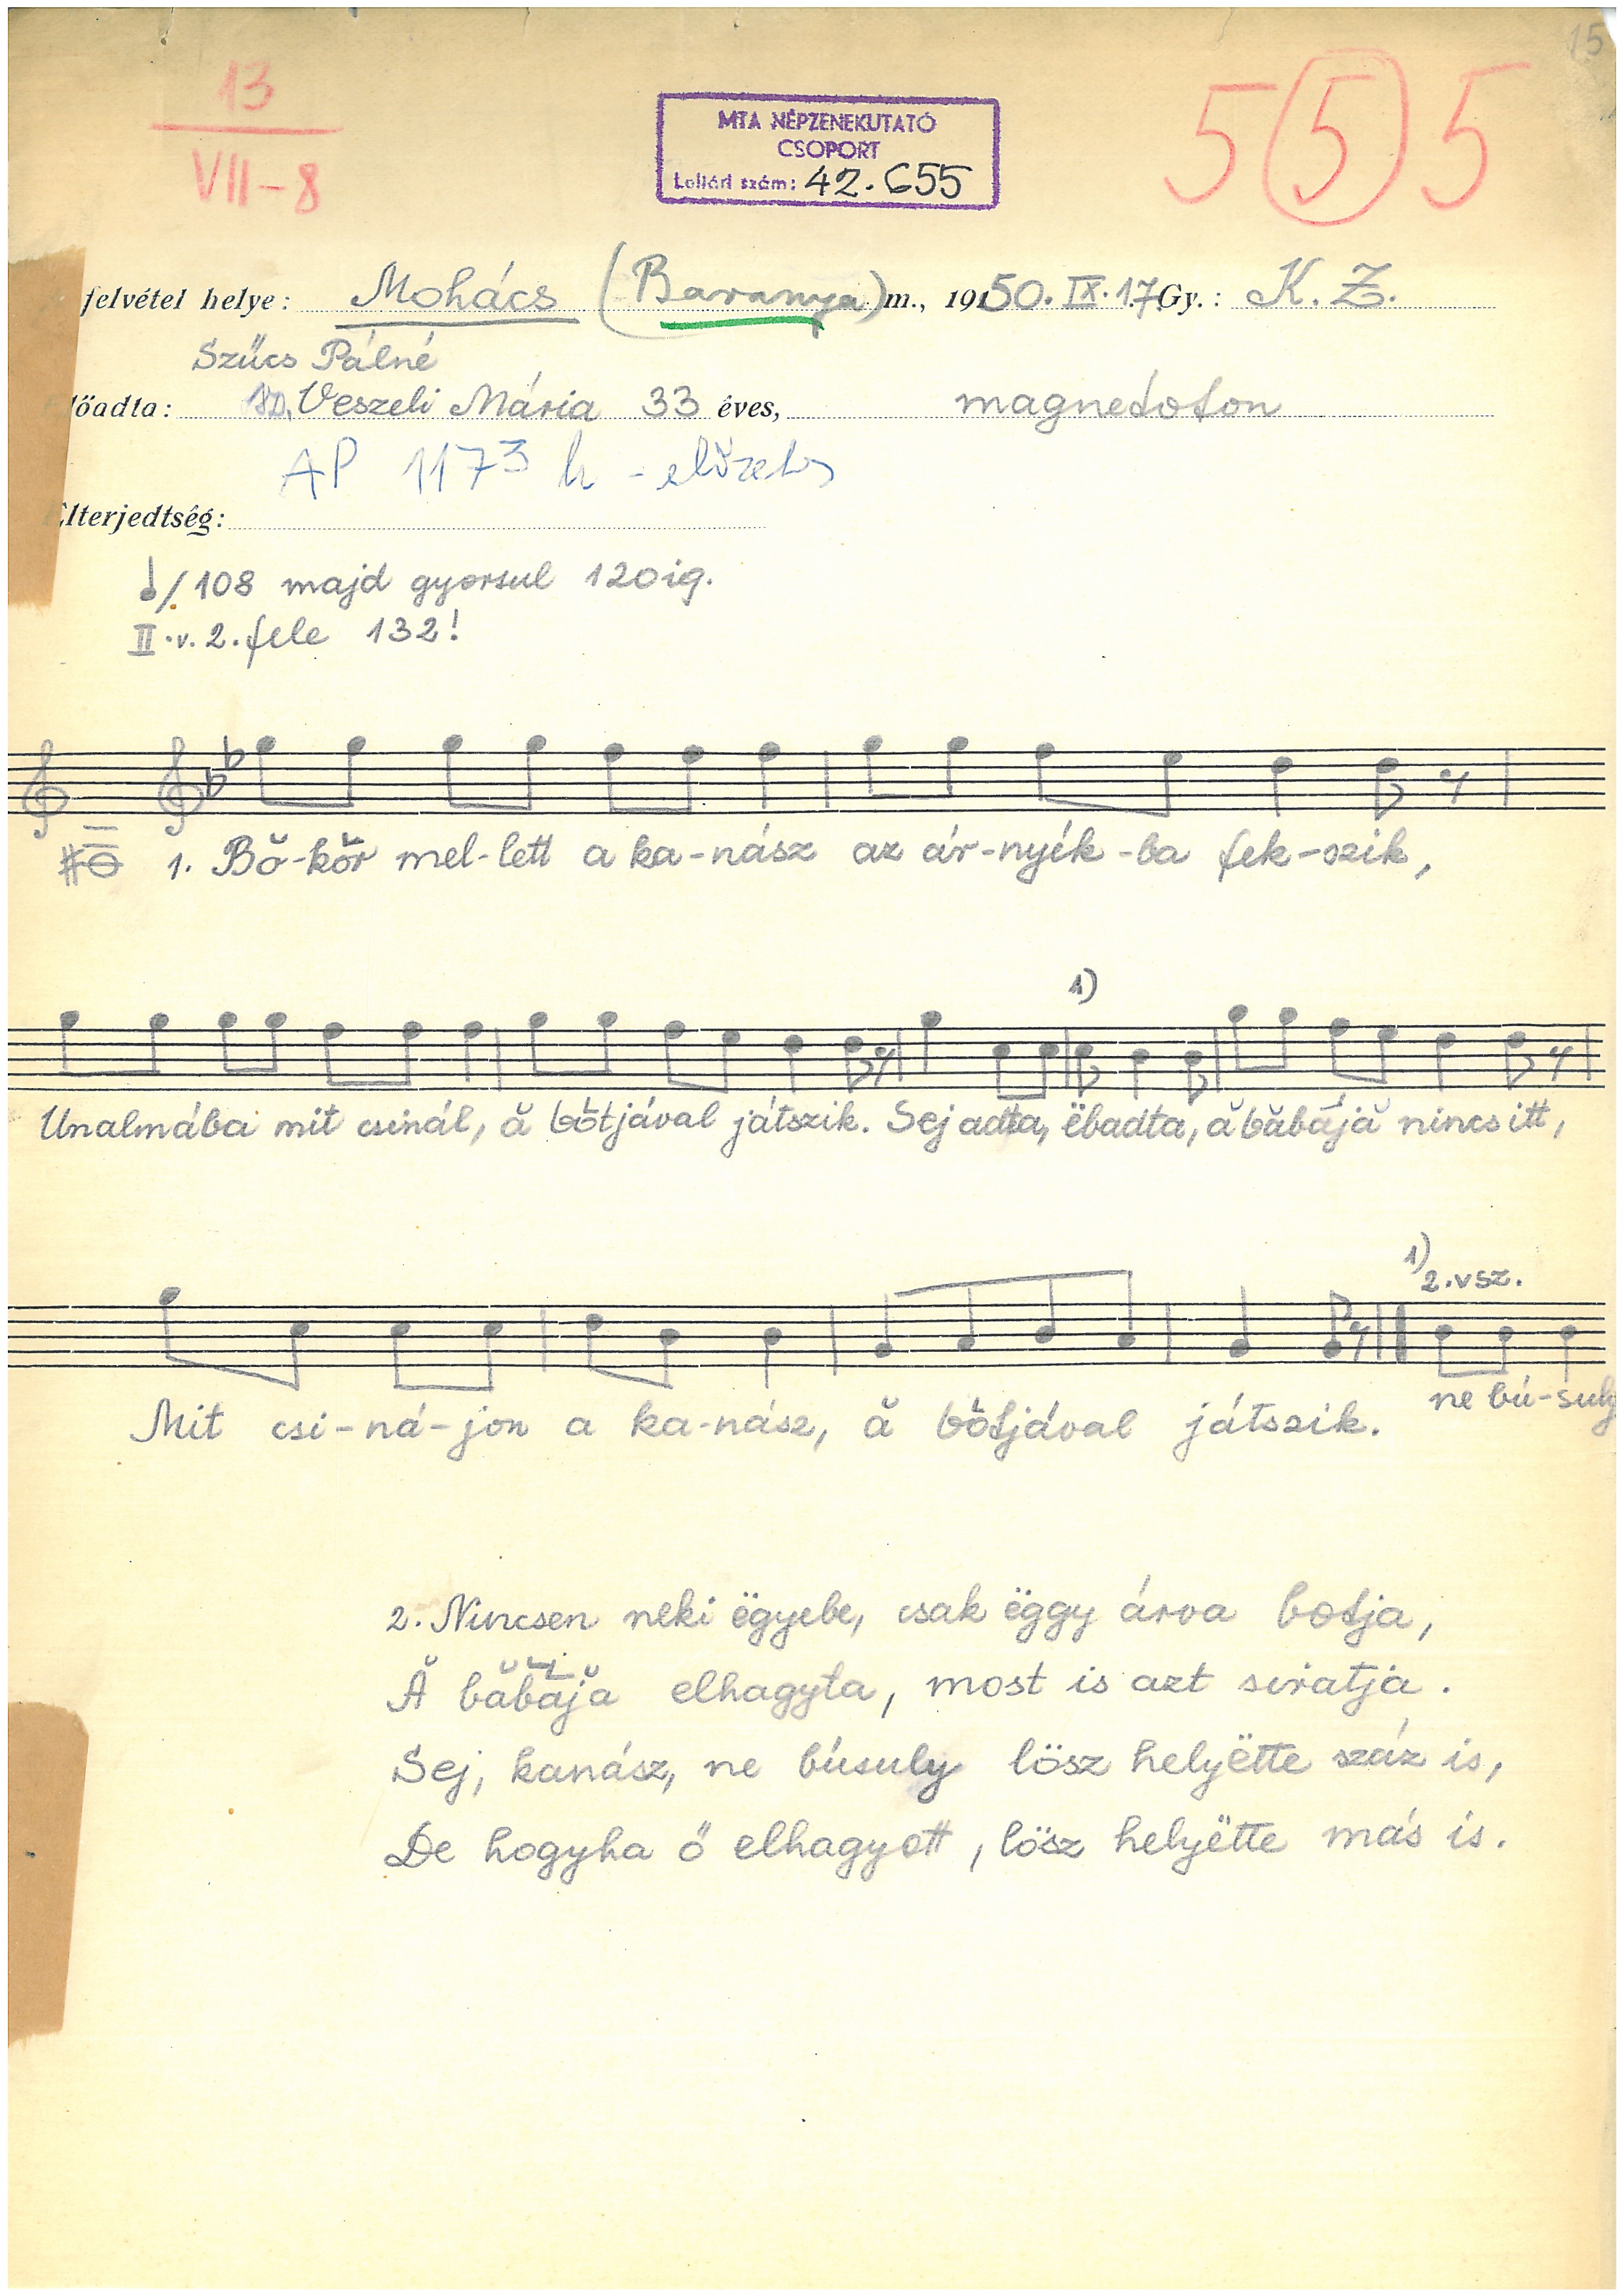 15
13
VII-8
MTA NÉPZENEKUTATÓ
CSOPORT
Leltári szám: 42.655
5 5 5
felvétel helye: Mohács (Baranya) m., 1950. IX. 17. Gy.: K. Z.
Szűcs Pálné
lőadta: Veszeli Mária 33 éves, magnetofon
AP 1173 h - előzetes
Elterjedtség:
/108 majd gyorsul 120ig.
II.v.2.fele 132!
1. Bŏ-kŏr mel-lett a ka-nász az ár-nyék-ba fek-szik,
1)
Unalmába mit csinál, ă bŏtjával játszik. Sej adta, ëbadta, ă băbájă nincs itt,
1)
2.vsz.
ne bú-suly
Mit csi-ná-jon a ka-nász, ă bŏtjával játszik.
2. Nincsen neki ëgyebe, csak ëggy árva botja,
Ă băbájă elhagyta, most is azt siratja.
Sej, kanász, ne búsuly lösz helyëtte száz is,
De hogyha ő elhagyott, lösz helyëtte más is.